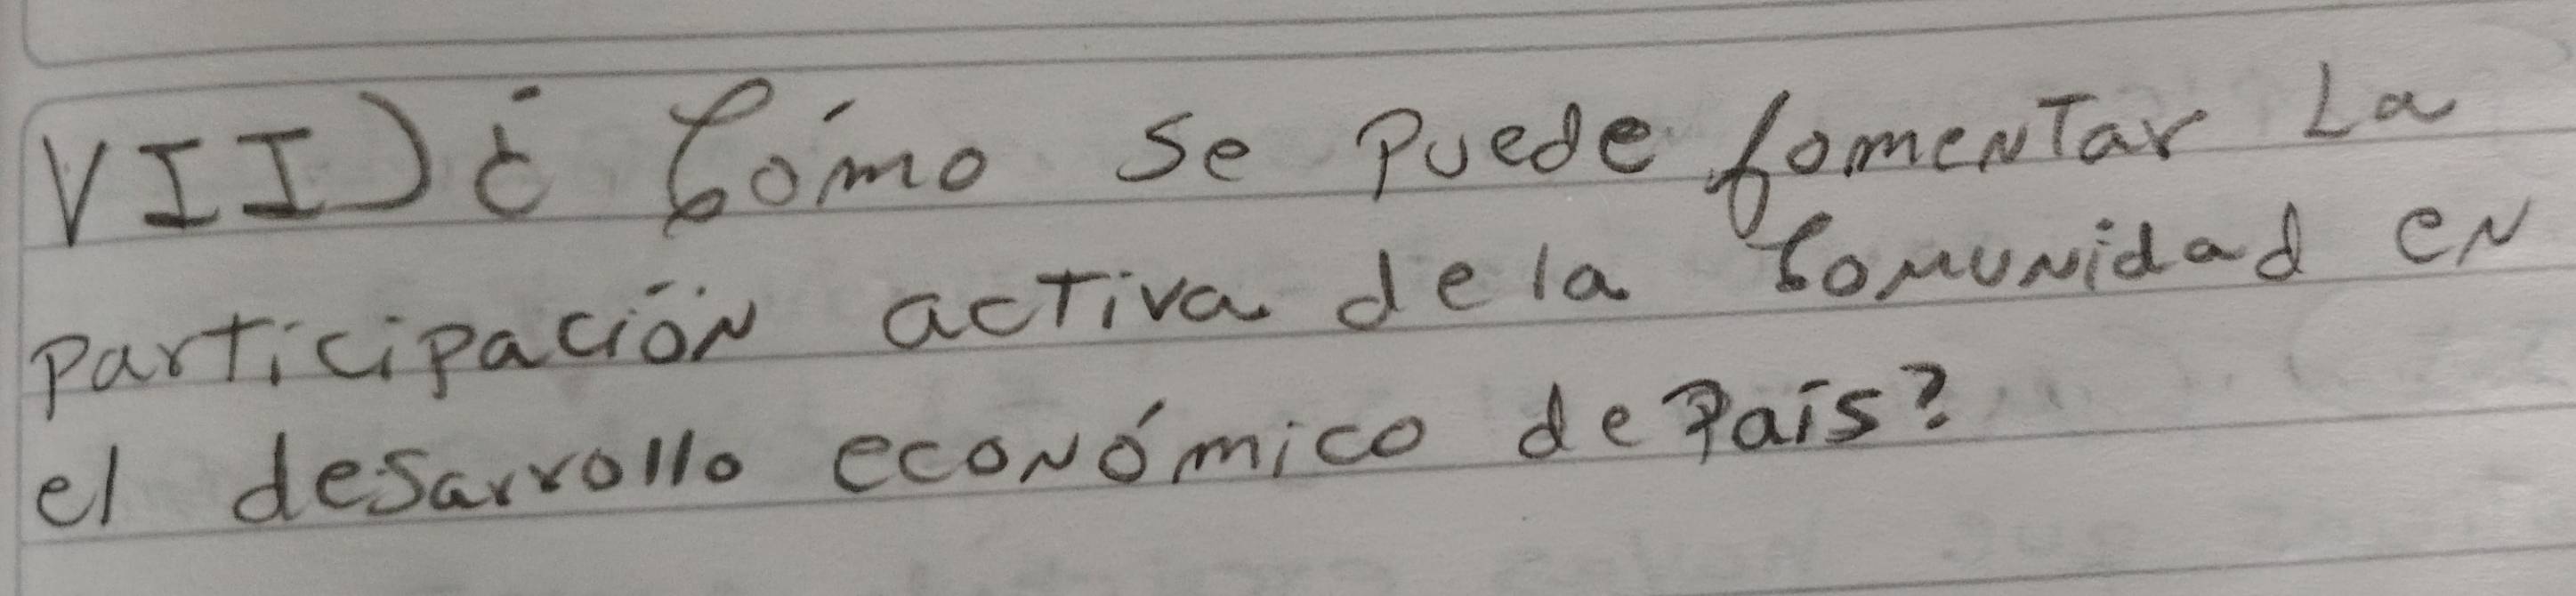 VII) ¿ Cómo se puede fomentar La
participación activa de la Comunidad en
el desarrollo económico de País?